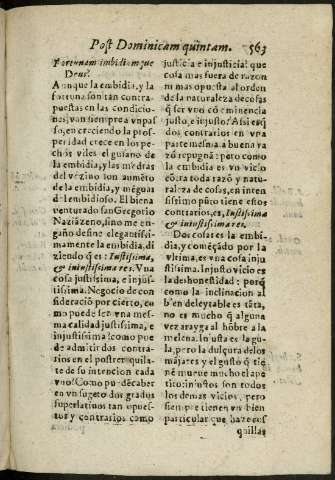 Post Dominicam quintam. 563
Fortunam imbidiamque
Deus?
Aunque la embidia, y la
fortuna son tan contra-
puestas en las condicio-
nes, van siempre a vn pas-
so, en creciendo la pros-
peridad crece en los pe-
chos viles el gusano de
la embidia, y las medras
del vezino son aumẽto
de la embidia, y mẽguas
del embidioso. El biena
uenturado san Gregorio
Naziãzeno, sino me en-
gaño define elegantissi-
mamente la embidia, di
ziendo q̃ es: Iustissima,
& iniustissima res. Vna
cosa justissima, e injus-
tissima. Negocio de con
sideraciõ por cierto, co
mo puede ser vna mes-
ma calidad justissima, e
injustissima? como pue
de admitir dos contra-
rios en el postrer quila-
te de su intencion cada
vno? Como pu-dẽ caber
en vn sugeto dos grados
superlatiuos tan opues-
tos y contrarios como
justicia e injusticia? que
cosa mas fuera de razon
ni mas opuesta al orden
de la naturaleza de cosas
q̃ ser vno cõ eminencia
justo, e injusto? Assi es q̃
dos contrarios en vna
parte mesma, a buena ra
zõ repugnã: pero como
la embidia es vn vicio
cõtra toda razõ y natu-
raleza de cosas, en inten
sissimo pũto tiene estos
contrarios, es, Iustissima
& iniustissima res.
Dos cosas es la embi-
dia, y comẽçãdo por la
vltima, es vna cosa inju
stissima. Injusto vicio es
la deshonestidad: porq̃
como la inclinacion al
bien deleytable es tãta,
no es mucho q̃ alguna
vez arrayga al hõbre a la
melena. Injusta es la gu-
la, pero la dulçura de los
mãjares y el gusto q̃ tie
nẽ mueue mucho el ape
tito: injustos son todos
los demas vicios, pero
siempre tienen vn bien
particular que haze cos
quillas